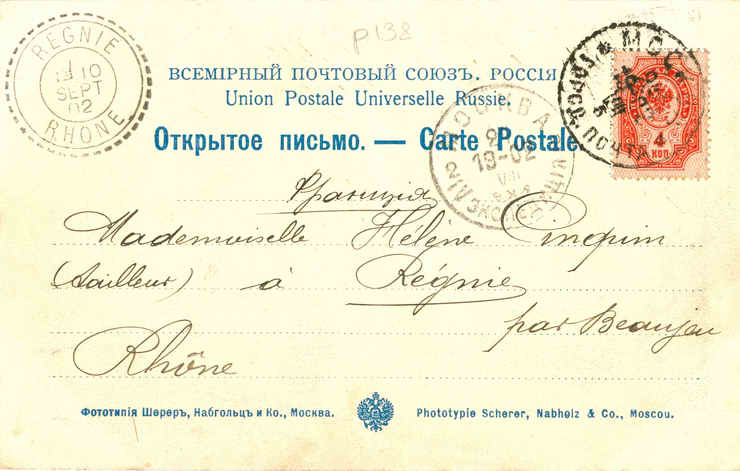 P 138
REGNIE
10
SEPT
02
RHONE
ВСЕМІРНЫЙ ПОЧТОВЫЙ СОЮЗЪ. РОССІЯ
Union Postale Universelle Russie.
Открытое письмо. — Carte Postale
МОСКВА
13-02
VIII
ЭКСПЕДИЦІЯ
МОС
ПОЧТ
4
КОП
Франція
Mademoiselle Hélène
(tailleur) à Régnie
par Beaujeu
Rhône
Фототипія Шереръ, Набгольцъ и Ко., Москва.
Phototypie Scherer, Nabholz & Co., Moscou.